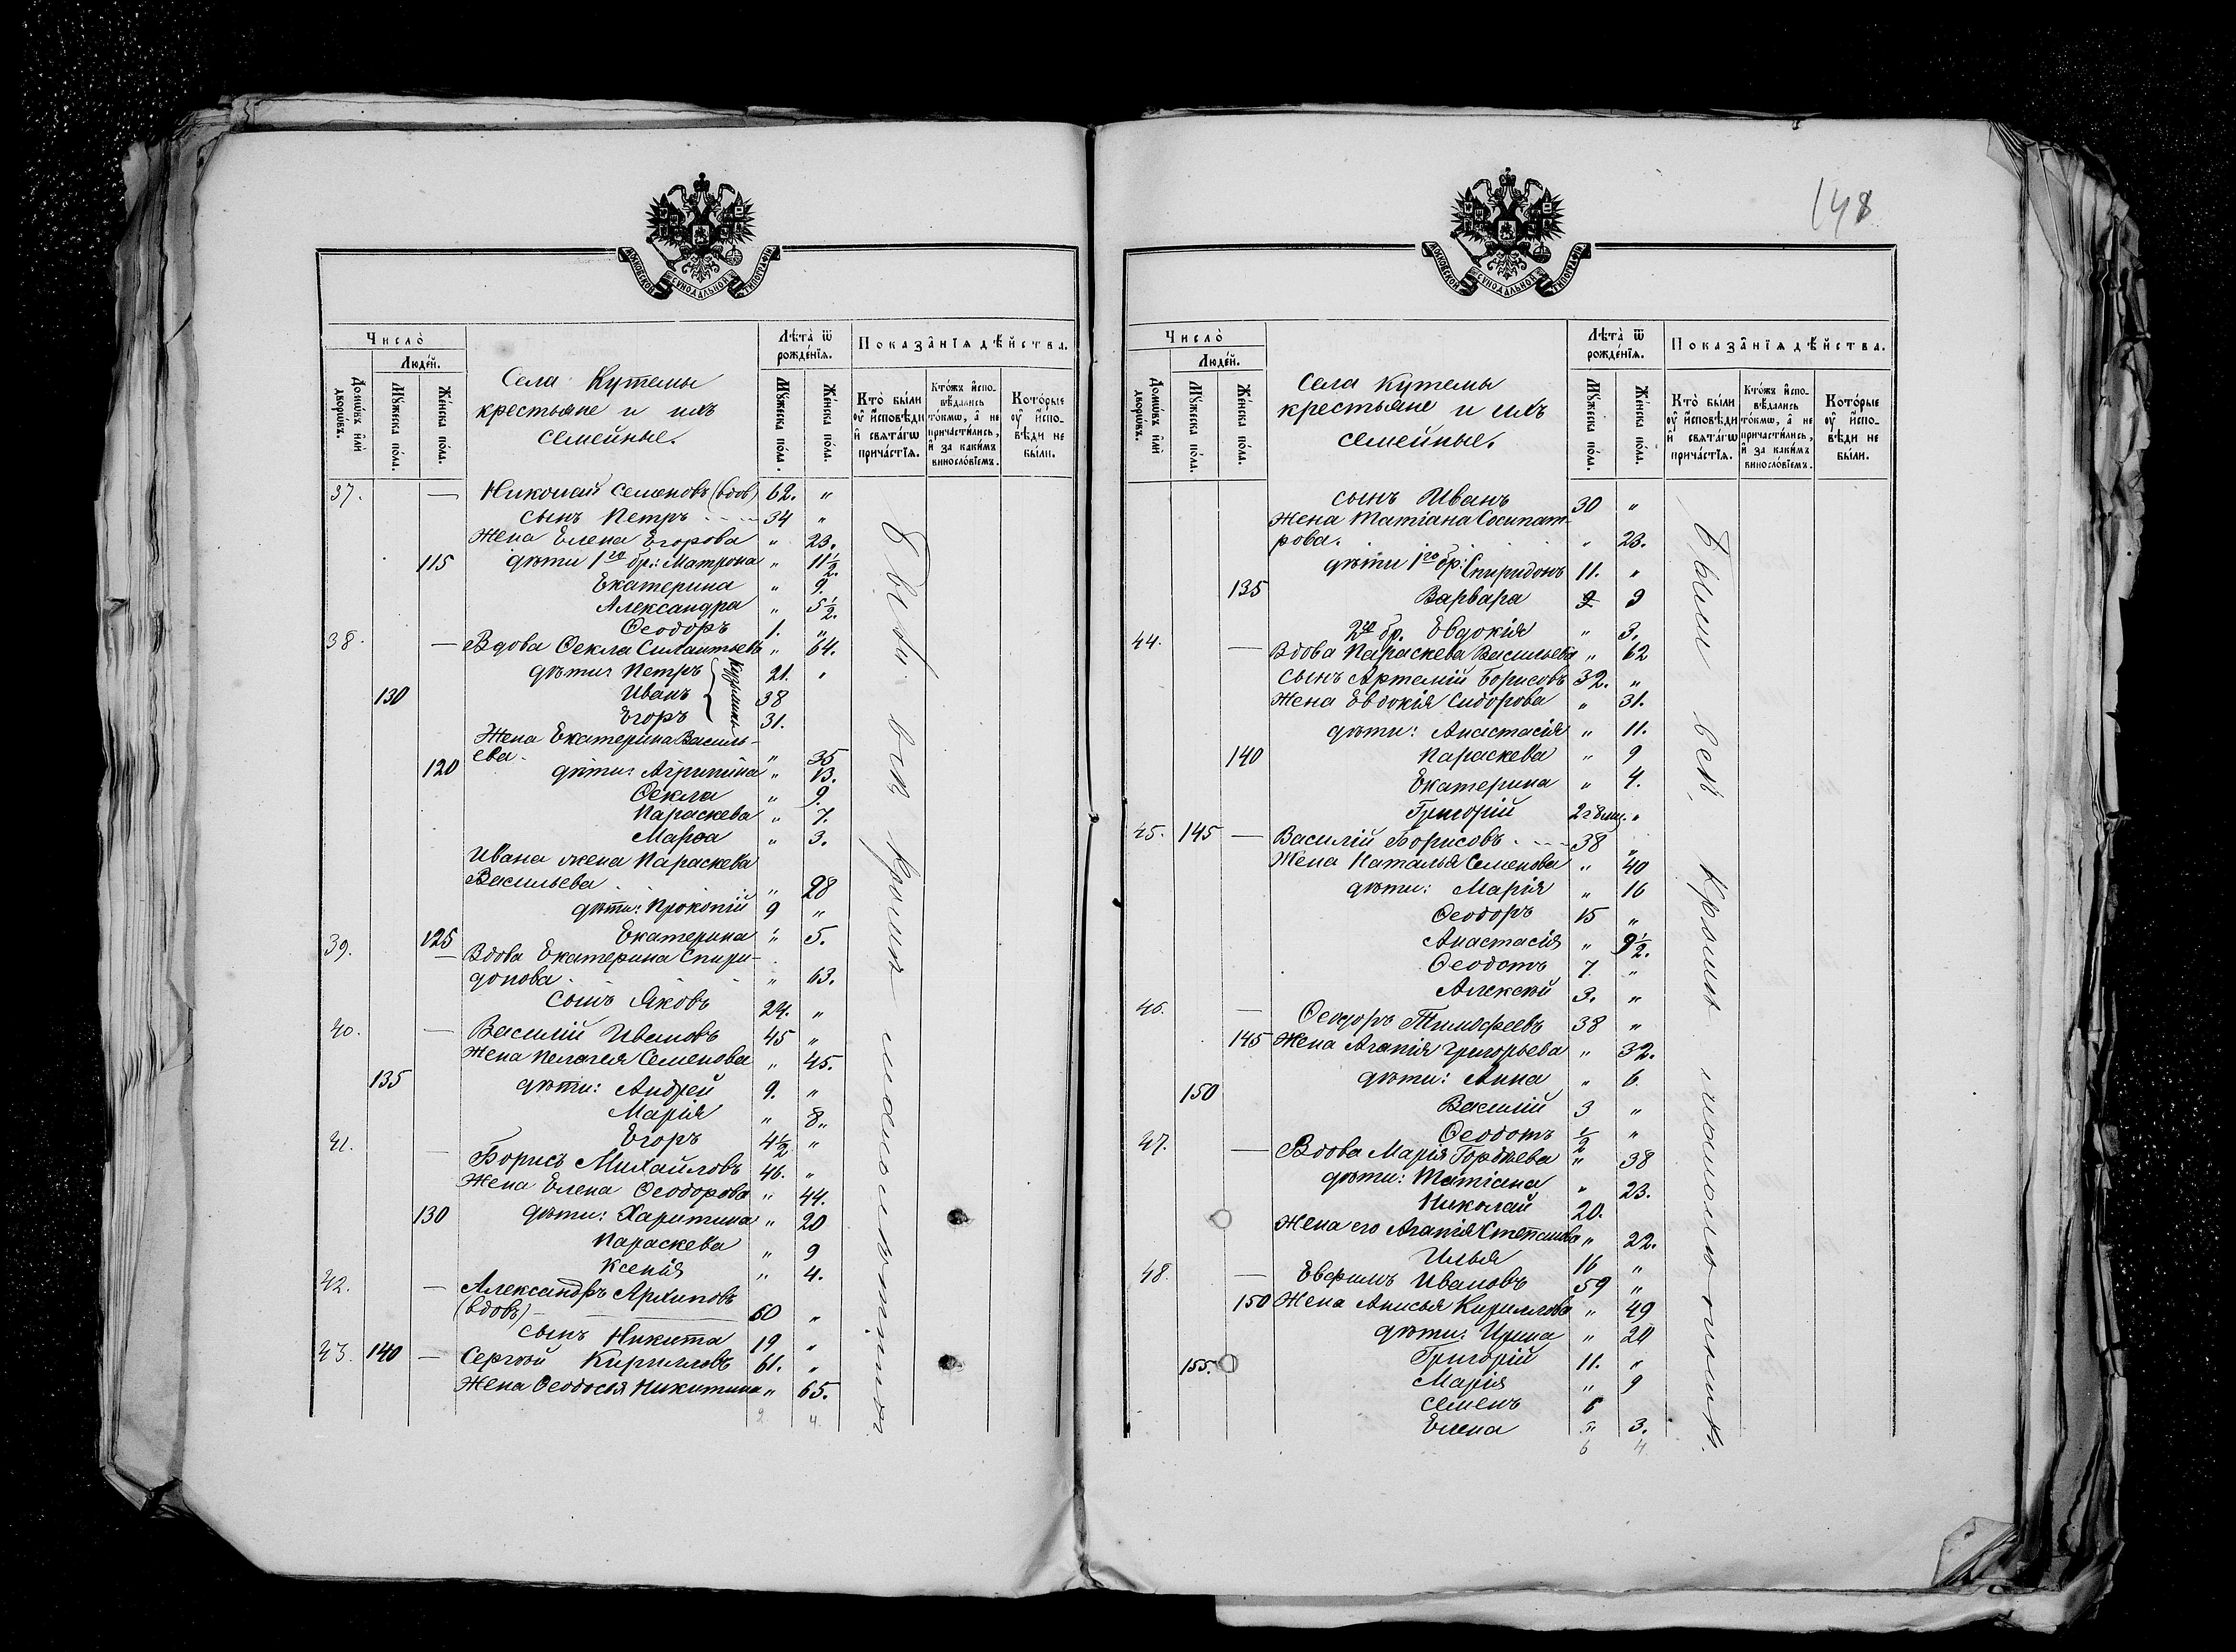 148
МОСКОВСКОЙ СѴНОДАЛЬНОЙ ТИПОГРАФІИ
Число̀
Людей.
Домѡвъ и҆лѝ дворѡвъ.
Мꙋжеска пола.
Женска пола.
Села Кутемы
крестьяне и ихъ
семейные.
Лѣта̀ ѿ рожде́нїѧ.
Мꙋжеска пола.
Женска пола.
Показа̑нїѧ дѣ́йства.
Кто̀ бы́ли ᲂу҆ и҆сповѣ́ди и҆ свѧта́гѡ прича́стїѧ.
Кто́жъ и҆спо-вѣ́дались то́кмѡ, а҆ не причасти́лись, и҆ за каки́мъ винословїемъ.
Кото́рые ᲂу҆ и҆спо-вѣ́ди не бы́ли.
37. — Николай Семеновъ (вдов) 62. "
сынъ Петръ 34 "
Жена Елена Егорова " 23.
115 дѣти 1го бр.: Матрона " 11 1/2.
Екатерина " 9.
Александра " 5 1/2.
Ѳеодоръ 1. "
38. — Вдова Ѳекла Силантьева " 64.
дѣти: Петръ 21. "
130 Иванъ 38
Егоръ 31.
Кузмины
Жена Екатерина Василь-
ева. " 35
120 дѣти: Агрипина " 13.
Ѳекла " 9.
Параскева " 7.
Марѳа " 3.
Ивана жена Параскева
Васильева " 28
дѣти: Прокопій 9 "
125 Екатерина " 5.
39. — Вдова Екатерина Спири-
донова " 63.
сынъ Яковъ 24. "
40. — Василій Ивановъ 45 "
Жена Пелагея Семенова " 45.
135 дѣти: Андрей 9. "
Марія " 8.
Егоръ 4 1/2 "
41. — Борисъ Михайловъ 46. "
Жена Елена Ѳеодорова " 44.
130 дѣти: Харитина " 20
Параскева " 9
Ксенія " 4.
42. — Александръ Архиповъ
(вдовъ) 60 "
сынъ Никита 19 "
43. 140 — Сергѣй Кирилловъ 61. "
Жена Ѳеодосья Никитина " 65.
2 4.
Были всѣ кромѣ малолѣтнихъ
МОСКОВСКОЙ СѴНОДАЛЬНОЙ ТИПОГРАФІИ
Число̀
Людей.
Домѡвъ и҆лѝ дворѡвъ.
Мꙋжеска пола.
Женска пола.
Села Кутемы
крестьяне и ихъ
семейные.
Лѣта̀ ѿ рожде́нїѧ.
Мꙋжеска пола.
Женска пола.
Показа̑нїѧ дѣ́йства.
Кто̀ бы́ли ᲂу҆ и҆сповѣ́ди и҆ свѧта́гѡ прича́стїѧ.
Кто́жъ и҆спо-вѣ́дались то́кмѡ, а҆ не причасти́лись, и҆ за каки́мъ винословїемъ.
Кото́рые ᲂу҆ и҆спо-вѣ́ди не бы́ли.
сынъ Иванъ 30 "
Жена Татіана Сосипат-
рова. " 23.
дѣти 1го бр: Спиридонъ 11. "
135 Варвара 9 9
2го бр. Евдокія " 3.
44. — Вдова Параскева Васильева " 62
сынъ Артемій Борисовъ 32. "
Жена Евдокія Сидорова " 31.
дѣти: Анастасія " 11.
140 Параскева " 9
Екатерина " 4.
Григорій "
45. 145 — Василій Борисовъ 38 "
Жена Наталья Семенова " 40
дѣти: Марія " 16
Ѳеодоръ 15 "
Анастасія " 9 1/2.
Ѳеодотъ 7 "
Алексѣй 3. "
46. — Ѳеодоръ Тимоѳеевъ 38 "
145 Жена Агапія Григорьева " 32.
дѣти: Анна " 6
150 Василій 3 "
Ѳеодотъ 1/2 "
47. — Вдова Марія Гордѣева " 38
дѣти: Татіана " 23.
Николай 20.
Жена его Агапія Степанова " 22.
Илья 16 "
48. — Евфимъ Ивановъ 59 "
150 Жена Анисья Кириллова " 49
дѣти: Ирина " 20
155. Григорій 11. "
Марія " 9
Семенъ 6
Елена " 3.
6 4
Были всѣ, кромѣ